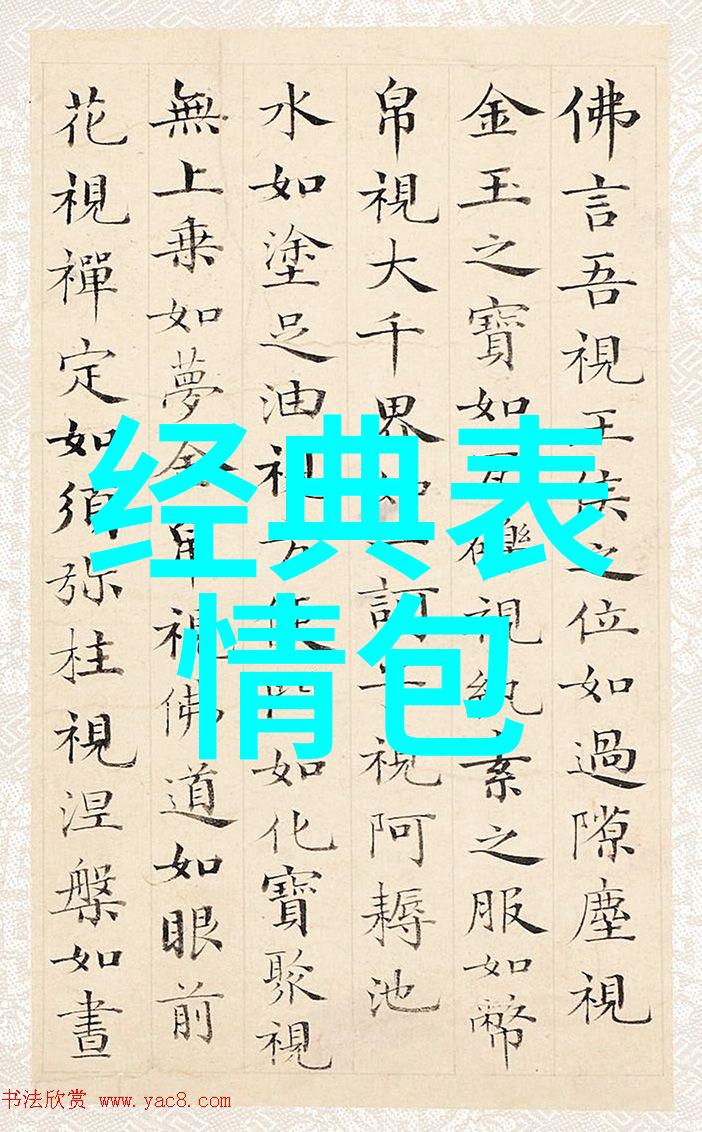 佛言吾視王侯之位如過隙塵視
金玉之寶如瓦礫視紈素之服如幣
帛視大千界如一訶子視阿耨池
水如塗足油視方便如化寶聚視
無上乗如夢金帛視佛道如眼前
花視禪定如須弥柱視涅槃如晝
经典表
情包
书法欣赏 www.yac8.com